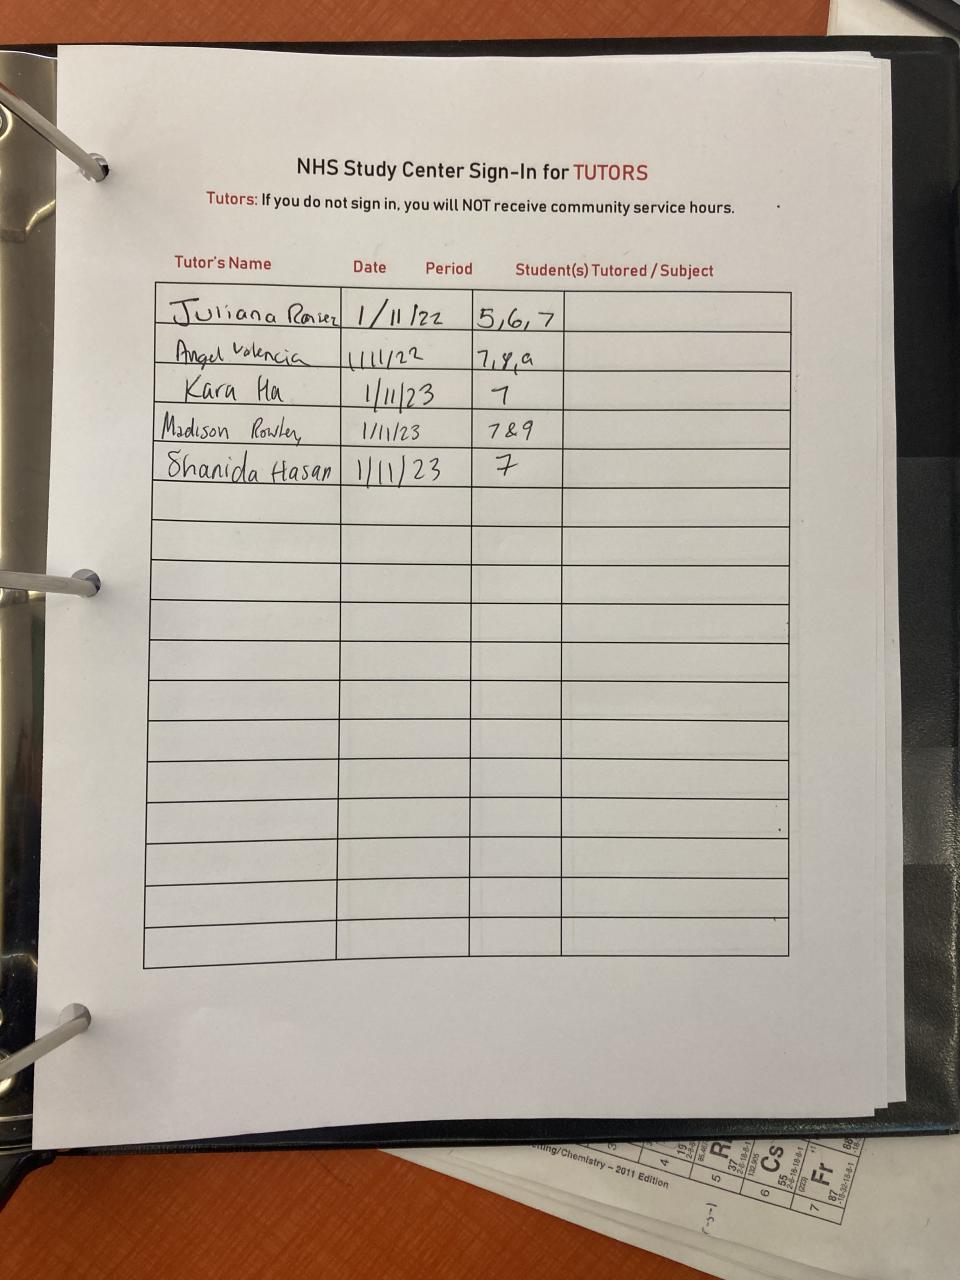 NHS Study Center Sign-In for TUTORS
Tutors: If you do not sign in, you will NOT receive community service hours.
Tutor's Name Date Period Student(s) Tutored / Subject
Juliana 1/11/22 5,6,7
Angel Valencia 1/11/22 7,8,9
Kara Ha 1/11/23 7
Madison Rowley 1/11/23 7&9
Shanida Hasan 1/11/23 7
ting/Chemistry – 2011 Edition
4 19
5 37
6 Cs 55
7 Fr 87